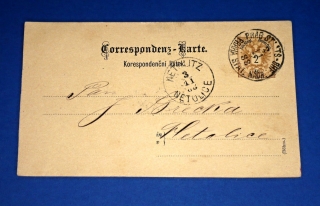 Correspondenz-Karte.
Korespondenční lístek.
2
NETOLITZ
3
11
NETOLICE
Pan
J. Brecka
Netolice
(Böhm.)